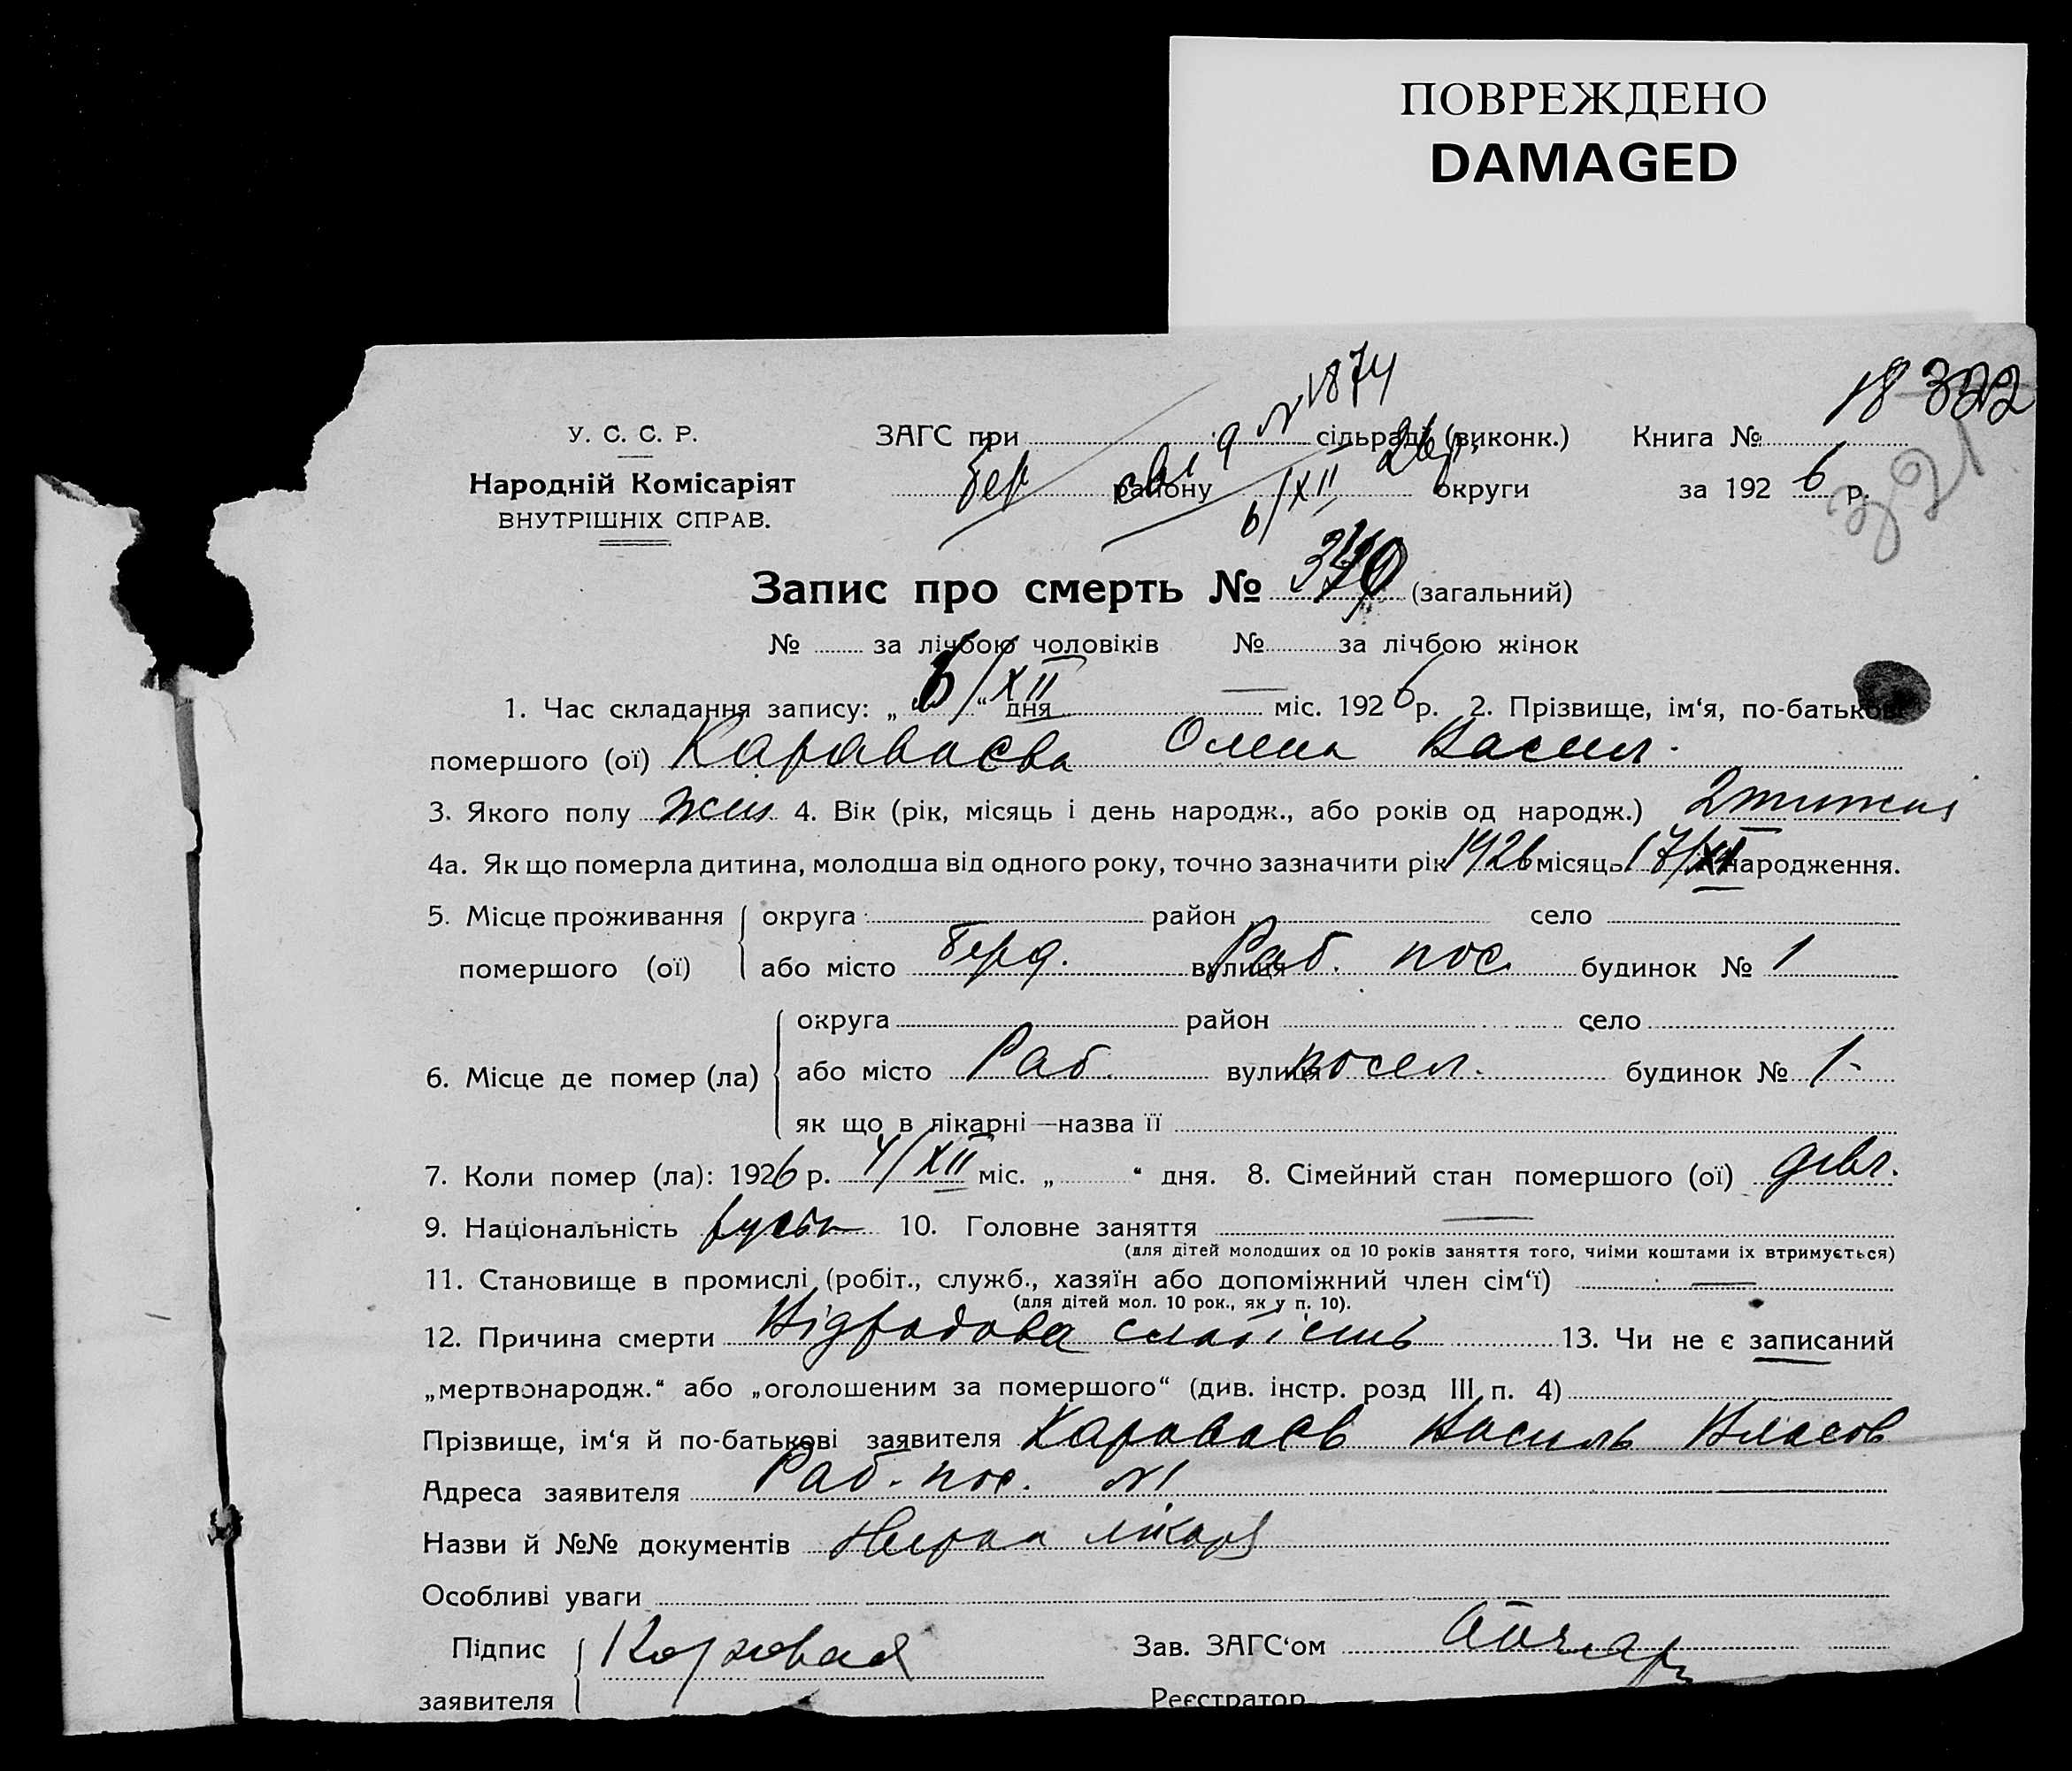 ПОВРЕЖДЕНО
DAMAGED
№ 1874
18 322
321
У. С. С. Р.
ЗАГС при сільраді (виконк.) Книга №
Народній Комісаріят
району 6/XII 26 р. округи за 1926 р.
ВНУТРІШНІХ СПРАВ.
Запис про смерть № (загальний)
№ за лічбою чоловіків № за лічбою жінок
1. Час складання запису: „6/XII“ дня — міс. 1926 р. 2. Прізвище, ім‘я, по-батькові
помершого (ої) Караваєва Олена Васил.
3. Якого полу жін. 4. Вік (рік, місяць і день народж., або років од народж.) 2 тижні
4а. Як що померла дитина, молодша від одного року, точно зазначити рік 1926 місяць 17/XI народження.
5. Місце проживання округа район село
помершого (ої) або місто Берд. вулиця Раб. пос. будинок № 1
округа район село
6. Місце де помер (ла) або місто Раб. вулиця посел. будинок № 1-
як що в лікарні—назва її
7. Коли помер (ла): 1926 р. 4/XII міс. „ “ дня. 8. Сімейний стан помершого (ої) дівч.
9. Національність 10. Головне заняття —
(для дітей молодших од 10 років заняття того, чиїми коштами їх втримується)
11. Становище в промислі (робіт., служб., хазяїн або допоміжний член сім‘ї) —
(для дітей мол. 10 рок., як у п. 10).
12. Причина смерти слабість 13. Чи не є записаний
„мертвонародж.“ або „оголошеним за помершого“ (див. інстр. розд III п. 4)
Прізвище, ім‘я й по-батькові заявителя Караваєв Василь Власов
Адреса заявителя Раб. пос. №1
Назви й №№ документів лікаря
Особливі уваги
Підпис Зав. ЗАГС‘ом
заявителя Реєстратор